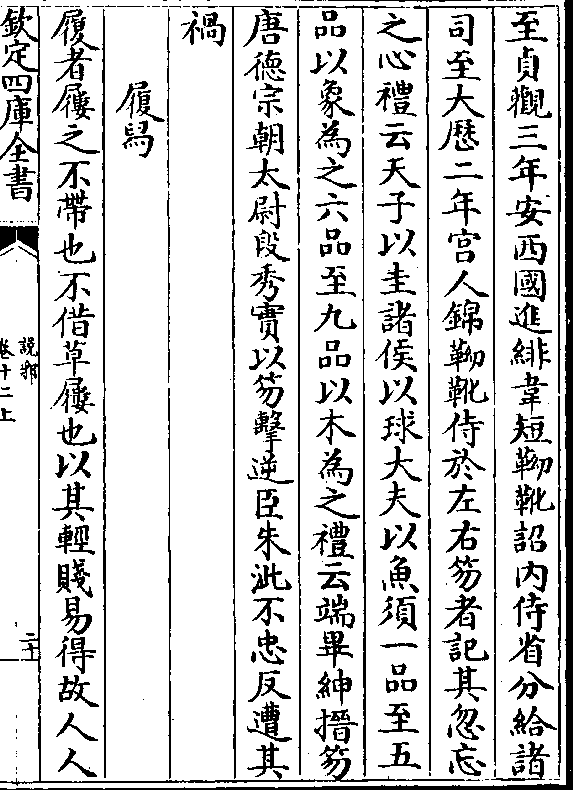 至貞觀三年安西國進緋韋短靿靴詔内侍省分給諸
司至大歷二年宫人錦靿靴侍於左右笏者記其忽忘
之心禮云天子以圭諸侯以球大夫以魚須一品至五
品以象為之六品至九品以木為之禮云端畢紳搢笏
唐德宗朝太尉段秀實以笏擊逆臣朱泚不忠反遭其
禍
履舄
履者屨之不帶也不借草屨也以其輕賤易得故人人
欽定四庫全書
説郛
卷十二上
二十